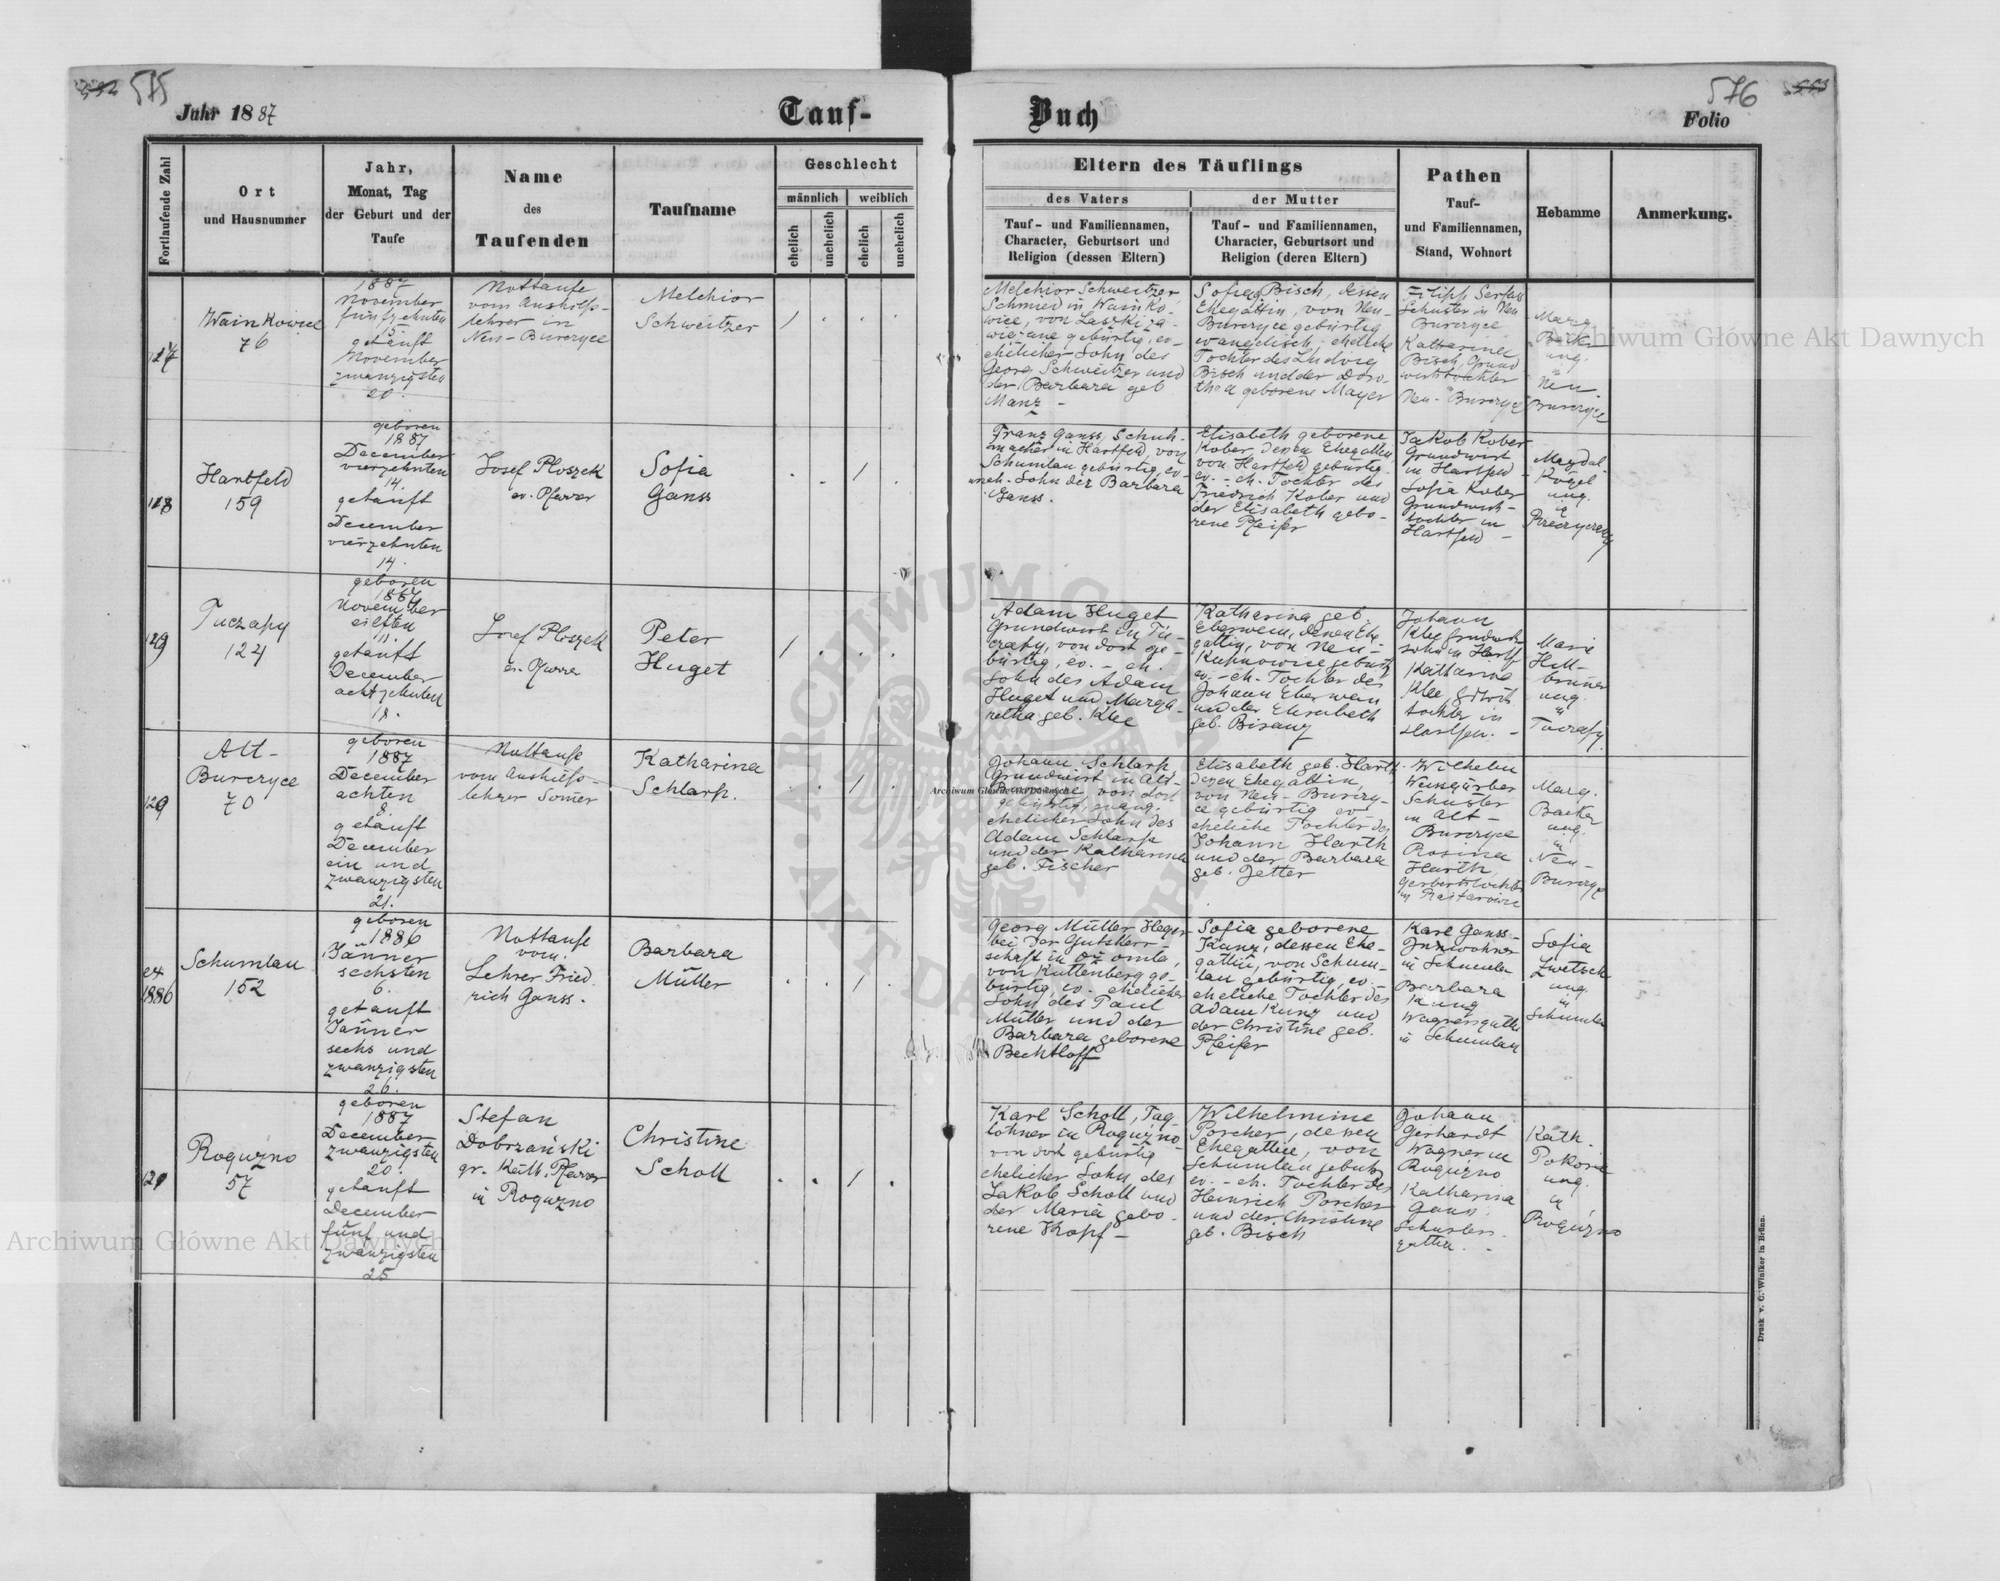 575
576
Jahr 1887
Tauf-
Buch
Folio
Fortlaufende Zahl
Ort
und Hausnummer
Jahr,
Monat, Tag
der Geburt und der
Taufe
Name
des
Taufenden
Taufname
Geschlecht
männlich
weiblich
ehelich
unehelich
ehelich
unehelich
Eltern des Täuflings
des Vaters
der Mutter
Tauf- und Familiennamen,
Character, Geburtsort und
Religion (dessen Eltern)
Tauf- und Familiennamen,
Character, Geburtsort und
Religion (deren Eltern)
Pathen
Tauf-
und Familiennamen,
Stand, Wohnort
Hebamme
Anmerkung.
Wainkowice
76
1887
November
fünfzehnten
15.
getauft
November
zwanzigsten
20.
Nottaufe
vom Aushilfs-
lehrer in
Neu-Burczyce
Melchior
Schweitzer
Melchior Schweitzer
Schmied in Wainko-
wice, von
gebürtig, ev-
ehelicher Sohn des
Georg Schweitzer und
der Barbara geb
Manz -
Sofie Bisch, dessen
Ehegattin, von Neu-
Burczyce gebürtig
evangelisch, eheliche
Tochter des Ludwig
Bisch und der Doro-
thea geborene Mayer
Schuster in Neu
Burczyce
Katharina
Bisch, Grund
wirtstochter
Neu-Burczyce
Marg.
ung.
in
Neu
Burczyce
118
Hartfeld
159
geboren
1887
December
vierzehnten
14.
getauft
December
vierzehnten
14.
Josef Ploszek
ev. Pfarrer
Sofia
Ganss
Franz Ganss, Schuh-
macher in Hartfeld, von
Schumlau gebürtig, ev-
uneh. Sohn der Barbara
Ganss.
Elisabeth geborene
Kober, dessen Ehegattin
von Hartfeld gebürtig
ev. - eh. Tochter des
Friedrich Kober und
der Elisabeth gebo-
rene Pfeifer
Jakob Kober
Grundwirt
in Hartfeld -
Sofia Kober
Grundwirts-
tochter in
Hartfeld -
Magdal.
Kogel
ung.
in
Tuczapy
124
geboren
1887
November
eilften
11.
getauft
December
achtzehnten
18.
Josef Ploszek
ev. Pfarrer
Peter
Huget
Adam Huget
Grundwirt in Tu-
czapy, von dort ge-
bürtig, ev. - eh.
Sohn des Adam
Huget und Marga-
retha geb. Klee
Katharina geb.
Eberwein, dessen Ehe
gattin, von Neu-
Kuhnowice gebürtig
ev. - eh. Tochter des
Johann Eberwein
und der Elisabeth
geb. Bisanz
Johann
Klee Grundwirts
sohn in Hartf
Katharina
Klee, Gdwts
tochter in
Hartfeld. -
Marie
Hell-
brunner
ung.
in
Tuczapy
Alt-
Burczyce
70
geboren
1887
December
achten
8.
getauft
December
ein und
zwanzigsten
21.
Nottaufe
vom Aushilfs-
lehrer Somer
Katharina
Schlarp.
Johann Schlarp
Grundwirt in Alt-
Burczyce von dort
gebürtig, evang.
ehelicher Sohn des
Adam Schlarp
und der Katharina
geb. Fischer
Elisabeth geb. Harth
dessen Ehegattin,
von Neu-Burczy-
ce gebürtig ev-
eheliche Tochter des
Johann Harth
und der Barbara
geb. Jetter
Wilhelm
Weingärber
Schuster
in Alt-
Burczyce
Rosina
Harth
Marg.
ung.
in
Neu-
Burczyce
ex
1886
Schumlau
152
geboren
1886
Jänner
sechsten
6.
getauft
Jänner
sechs und
zwanzigsten
26.
Nottaufe
vom
Lehrer Fried.
rich Ganss.
Barbara
Müller
Georg Müller Heger
bei der Gutsherr-
schaft in
von Kuttenberg ge-
bürtig, ev. ehelicher
Sohn des Paul
Müller und der
Barbara geborene
Bechtloff
Sofia geborene
Kunz, dessen Ehe-
gattin, von Schum-
lau gebürtig, ev.-
eheliche Tochter des
Adam Kunz und
der Christine geb.
Pfeifer
Karl Ganss
Inwohner
in Schumlau
Barbara
Kunz
Wagnersgattin
in Schumlau
Sofia
Zwetsch
ung.
in
Schumlau
Rogużno
57
geboren
1887
December
zwanzigsten
20.
getauft
December
fünf und
zwanzigsten
25
Stefan
Dobrzański
gr. Kath. Pfarrer
in Roguzno
Christine
Scholl
Karl Scholl, Tag-
löhner in Rogużno
von dort gebürtig
ehelicher Sohn des
Jakob Scholl und
der Maria gebo-
rene Kopf -
Wilhelmine
Porcher, dessen
Ehegattin, von
Schumlau gebürtig
ev. - eh. Tochter des
Heinrich Porcher
und der Christine
geb. Bisch
Johann
Gerhardt
Wagner in
Rogużno
Katharina
Ganss
Schusters-
gattin. -
Kath.
ung.
in
Rogużno
Druck v. C. Winiker in Brünn.
Archiwum Główne Akt Dawnych
Archiwum Główne Akt Dawnych
Archiwum Główne Akt Dawnych